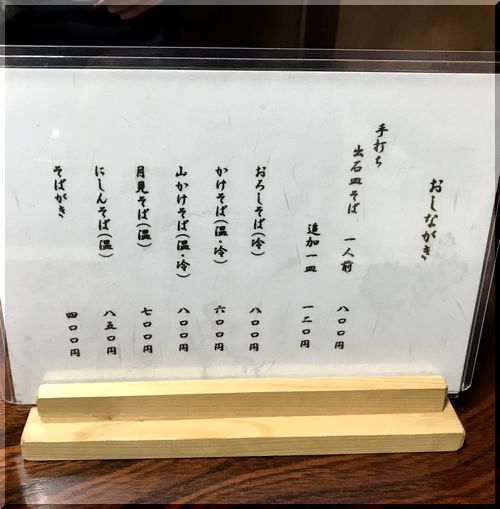 おしながき
手打ち
出石皿そば 一人前 八〇〇円
追加一皿 一二〇円
おろしそば(冷) 八〇〇円
かけそば(温・冷) 六〇〇円
山かけそば(温・冷) 八〇〇円
月見そば(温) 七〇〇円
にしんそば(温) 八五〇円
そばがき 四〇〇円